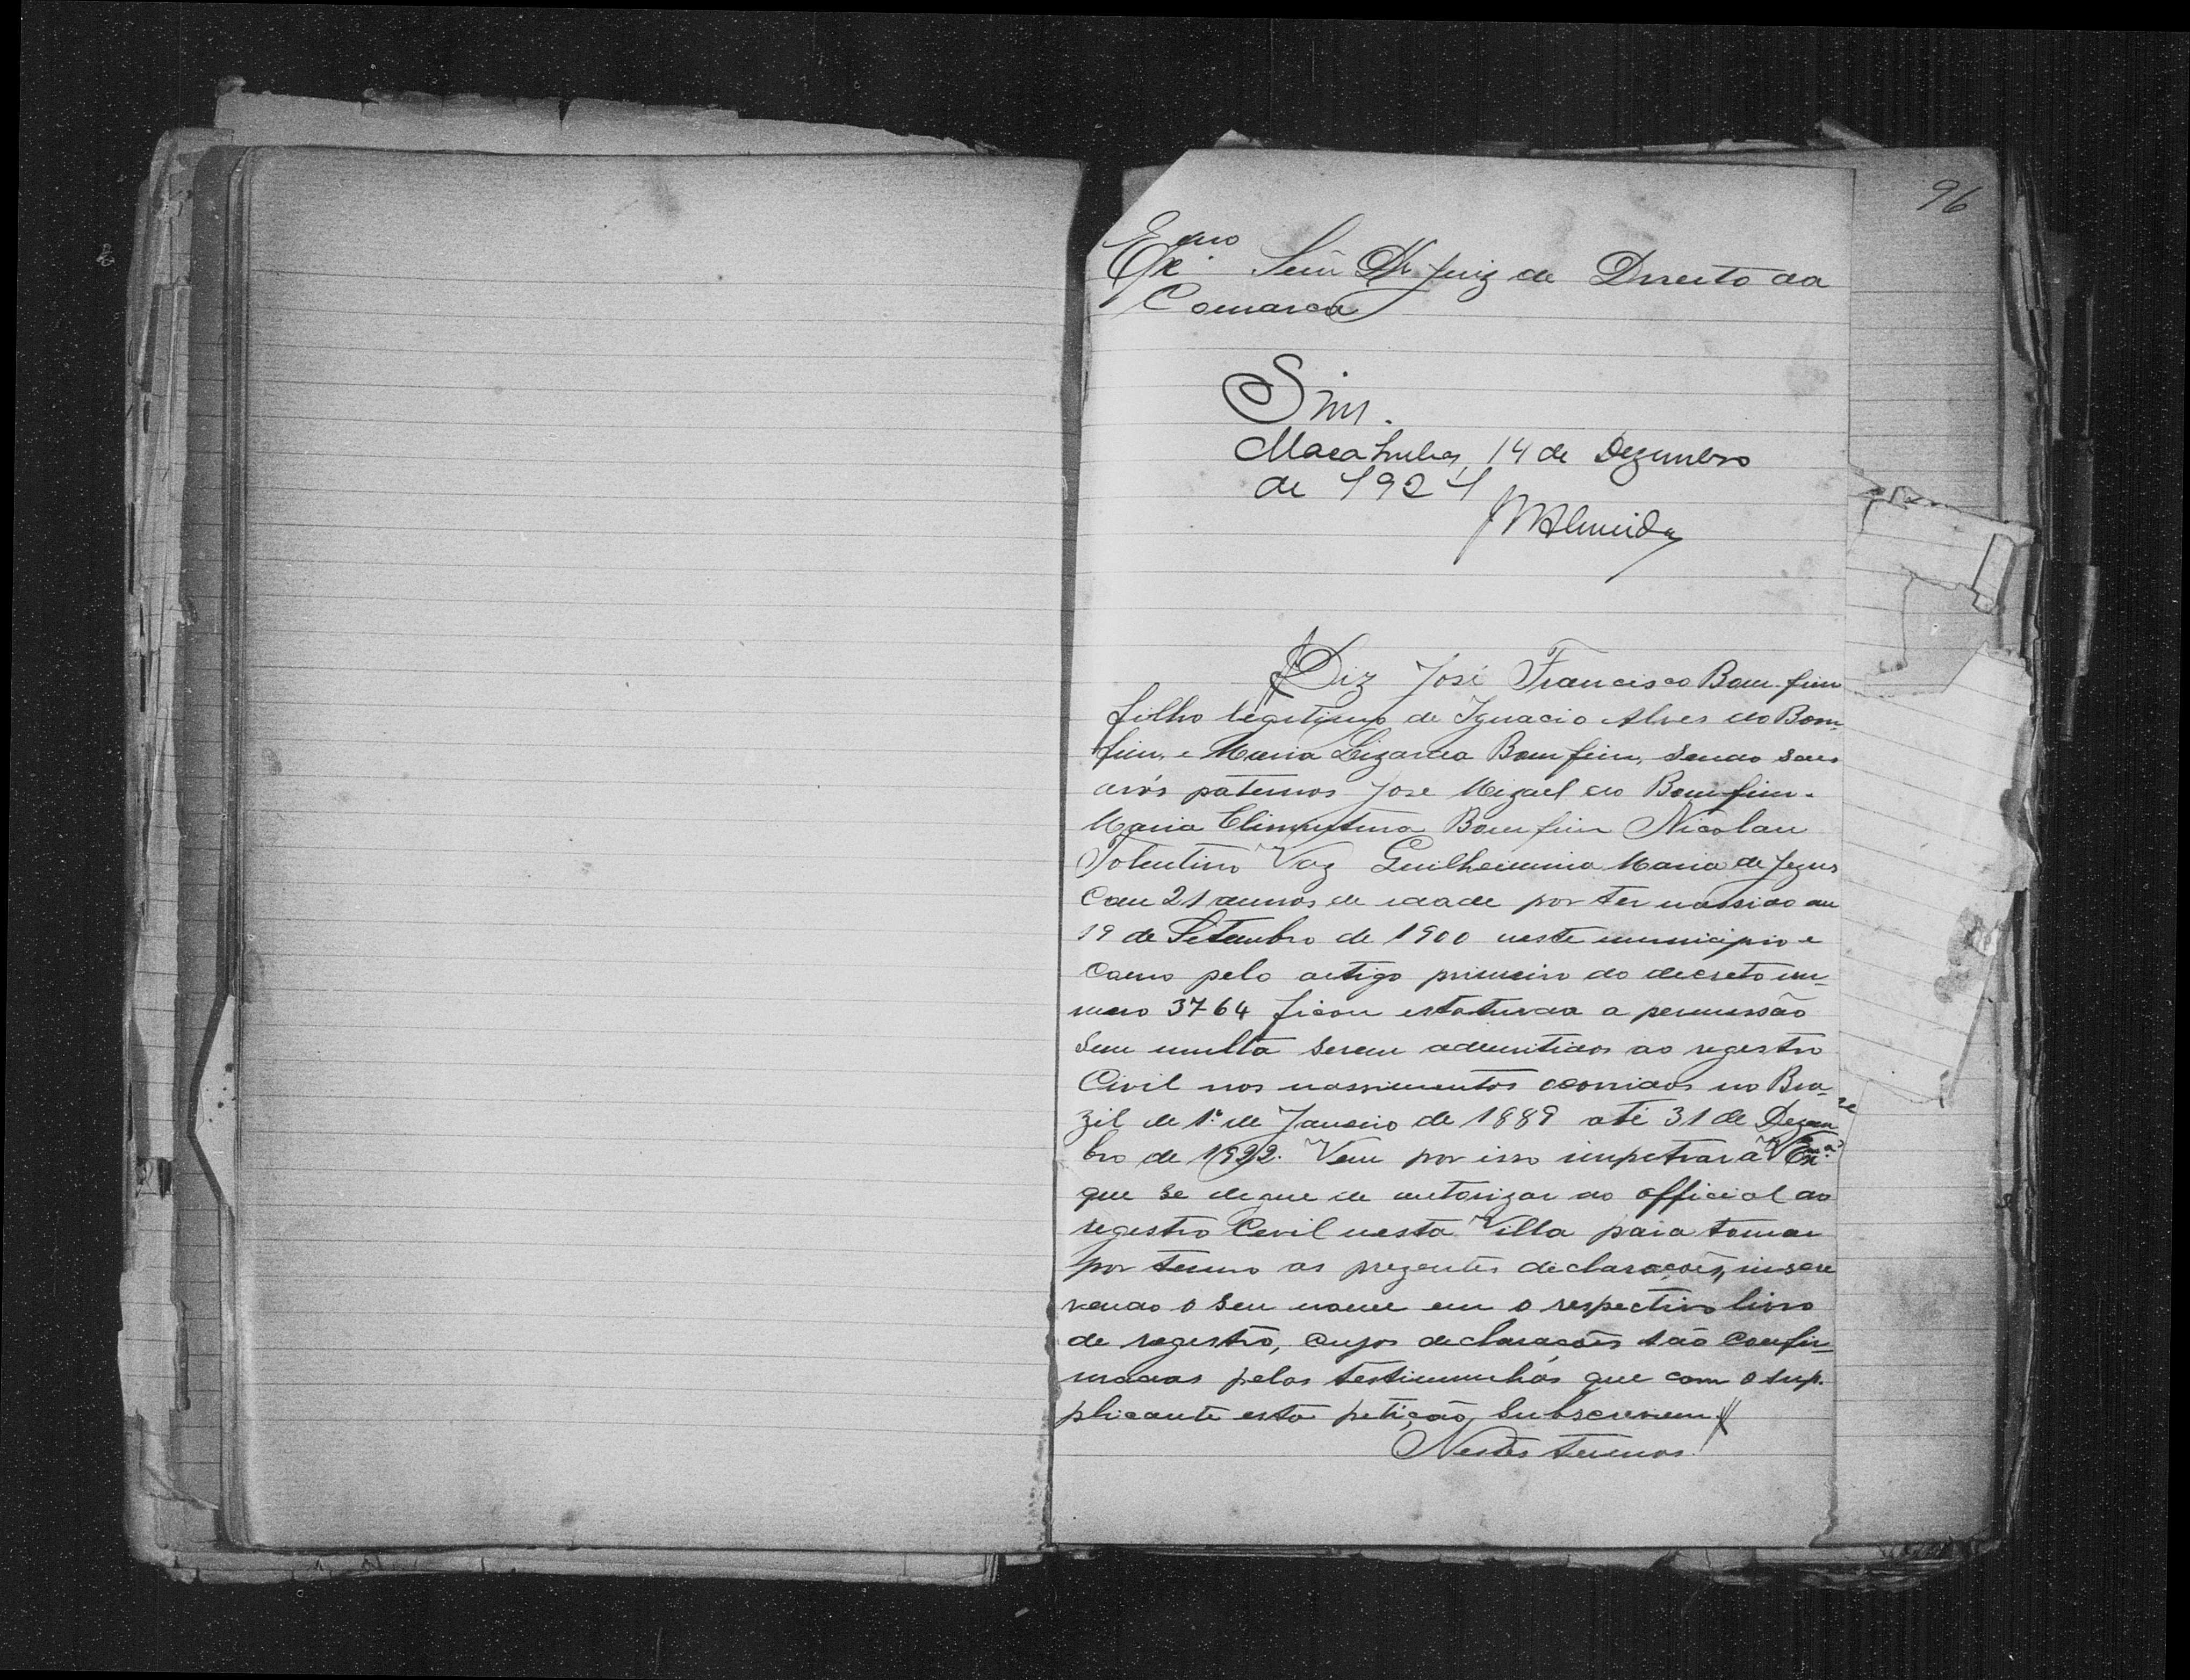 96
Exmo Senr Dr Juiz de Direito da
Comarca
Sim.
Macahubas, 14 de Dezembro
de 1921
Almeida
Diz José Francisco Bom fim
filho legitimo de Ignacio Alves do Bom-
fim, e Maria Lizarda Bom fim, sendo seus
avós paternos José Miguel do Bom fim.
Maria Bom fim Nicolau
Tolentino Vaz Guilhermina Maria de Jezus
Com 21 annos de idade por ter nassido em
19 de Setembro de 1900 neste municipio e
Como pelo artigo primeiro do decreto nu-
mero 3764 ficou estatuida a permissão
Sem multa serem admitidos ao registro
Civil nos nassimentos ocorridos no Bra-
zil de 1º de Janeiro de 1889 até 31 de Dezem
bro de 1922. Vem por isso impetrar a V Exª
que se digne de autorizar ao official do
registro Cevil nesta Villa para tomar
por termo as prezentes declarações, inscre
vendo o seu nome em o respectivo livro
de registro, cujos declarações são Confir-
madas pelas testimunhas que com o sup-
plicante esta petição, Subscrevem
Nestes termos